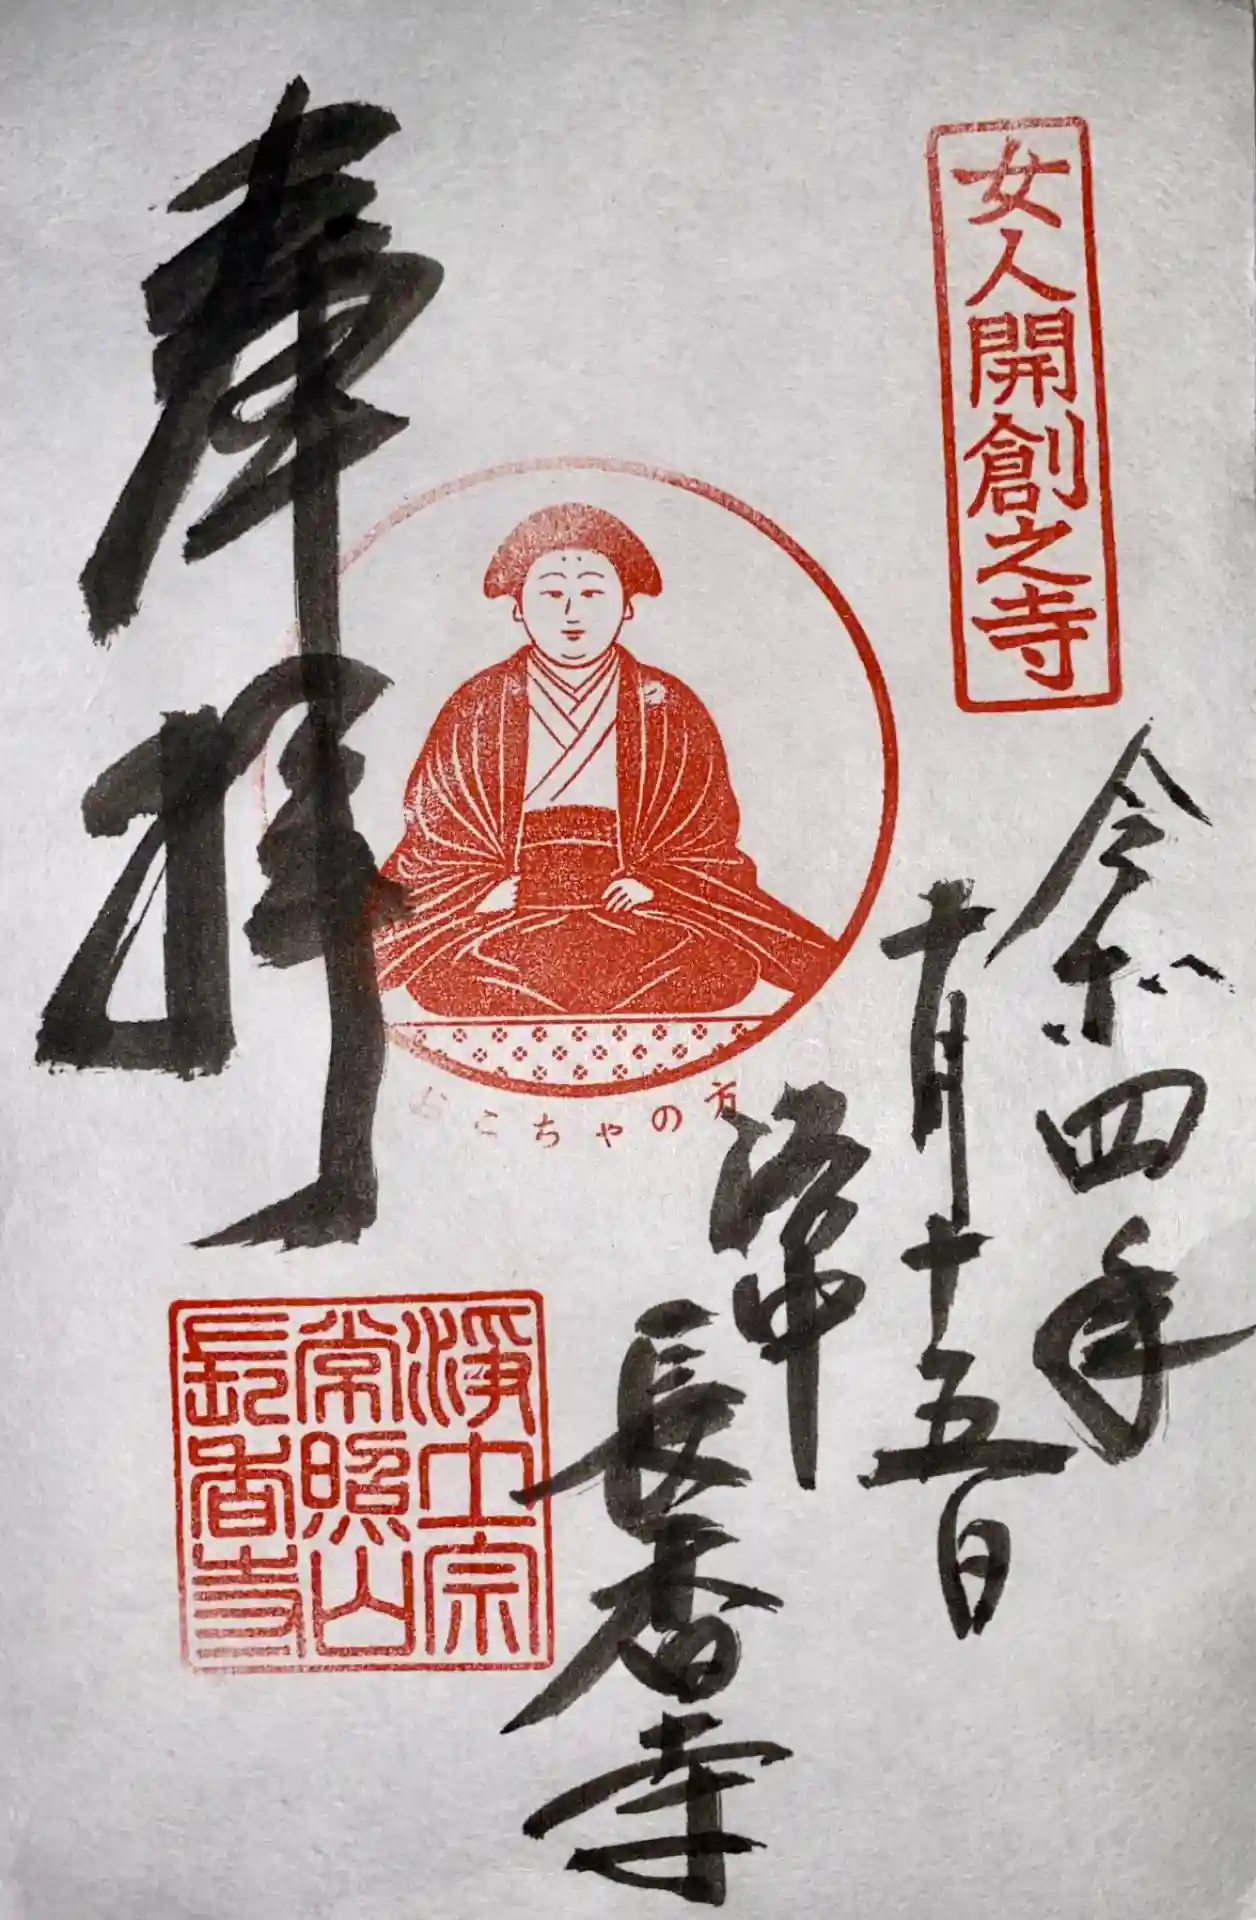 女人開創之寺
令和四年
十月十五日
洛中
長香寺
おこちゃの方
奉拝
浄土宗
常照山
長香寺